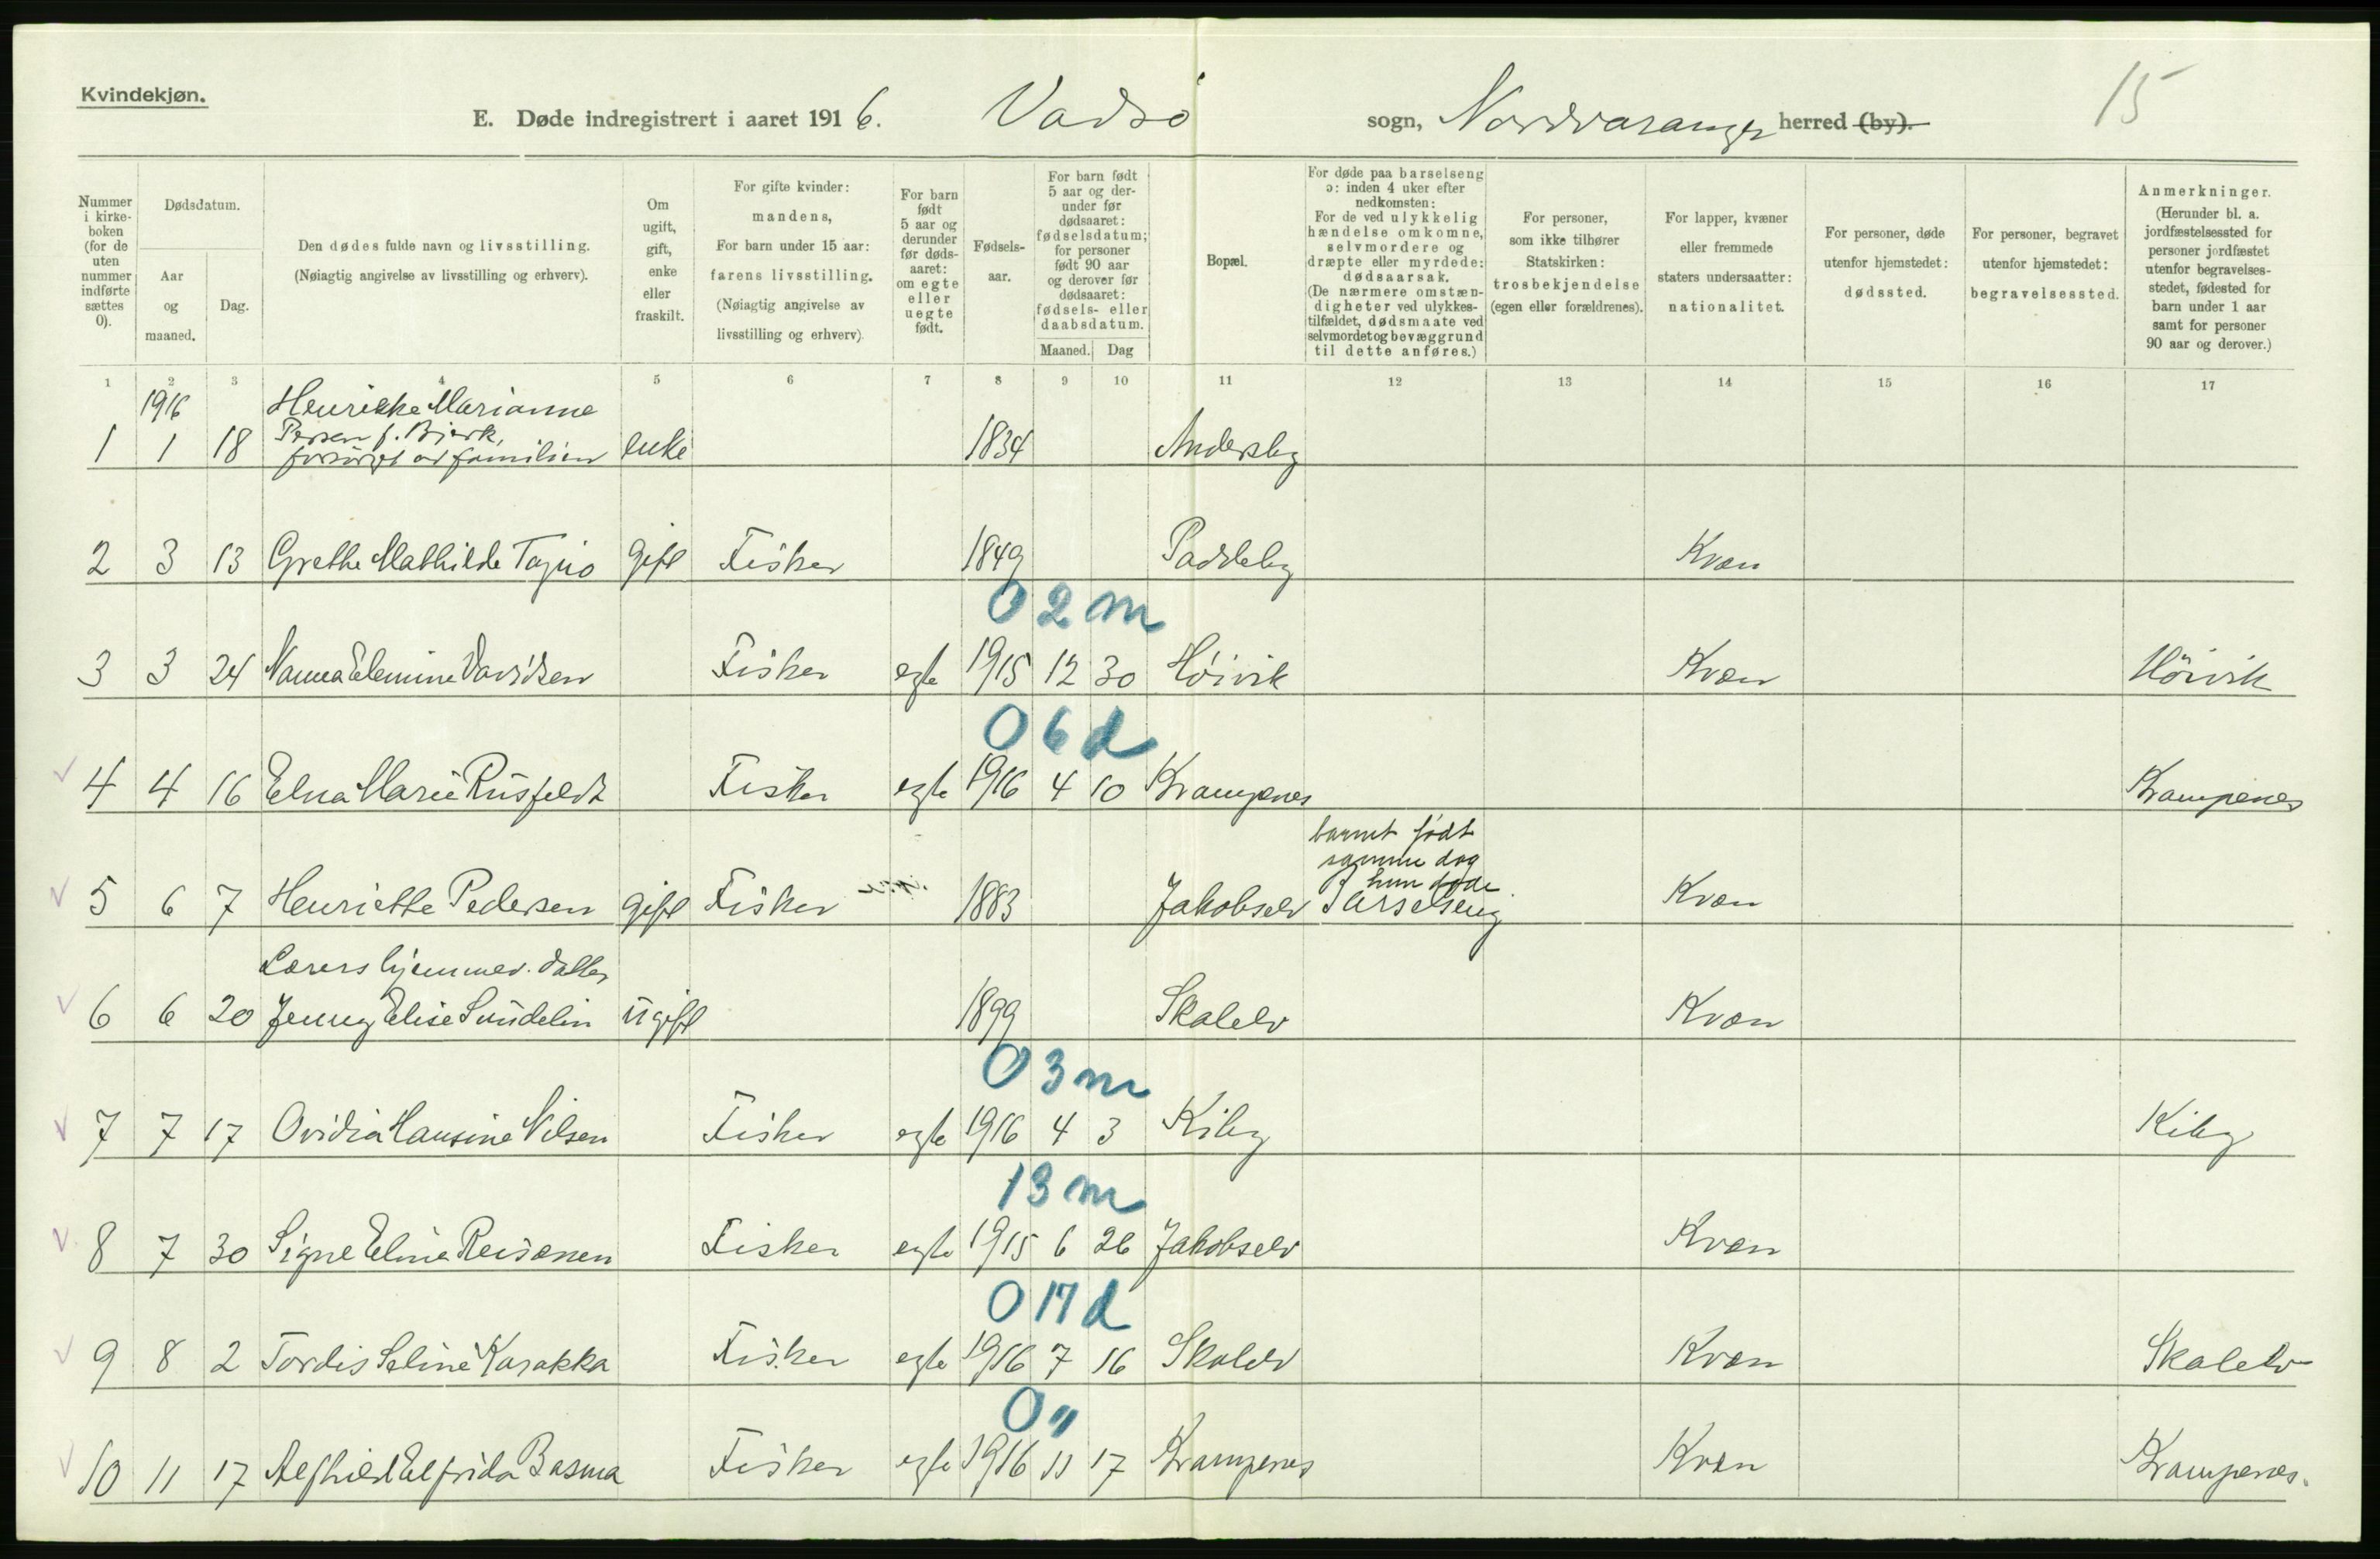 Kvindekjøn.
15
E. Døde indregistrert i aaret 1916. Vadsø sogn, Nordvaranger herred (by).
Nummer i kirke-boken (for de uten nummer indførte sættes 0).
Dødsdatum.
Aar og maaned.
Dag.
Den dødes fulde navn og livsstilling.
(Nøiagtig angivelse av livsstilling og erhverv).
Om ugift, gift, enke eller fraskilt.
For gifte kvinder: mandens,
For barn under 15 aar: farens livsstilling.
(Nøiagtig angivelse av livsstilling og erhverv).
For barn født 5 aar og derunder før døds-aaret: om egte eller uegte født.
Fødsels-aar.
For barn født 5 aar og der-under før dødsaaret: fødselsdatum; for personer født 90 aar og derover før dødsaaret: fødsels- eller daabsdatum.
Maaned. Dag
Bopæl.
For døde paa barselseng ɔ: inden 4 uker efter nedkomsten:
For de ved ulykkelig hændelse omkomne, selvmordere og dræpte eller myrdede: dødsaarsak.
(De nærmere omstæn-digheter ved ulykkes-tilfældet, dødsmaate ved selvmordet og bevæggrund til dette anføres.)
For personer, som ikke tilhører Statskirken: trosbekjendelse (egen eller forældrenes).
For lapper, kvæner eller fremmede staters undersaatter: nationalitet.
For personer, døde utenfor hjemstedet: dødssted.
For personer, begravet utenfor hjemstedet: begravelsessted.
Anmerkninger.
(Herunder bl. a. jordfæstelsessted for personer jordfæstet utenfor begravelses-stedet, fødested for barn under 1 aar samt for personer 90 aar og derover.)
1 2 3 4 5 6 7 8 9 10 11 12 13 14 15 16 17
1916 Henrikke Marianne
Persen f. Bjørk,
1 1 18 forsørget av familien enke 1834 Andersby
2 3 13 Grethe Mathilde Tajno gift Fisker 1849 Paddeby Kvæn
0 2 m
3 3 24 Nanna Elemine Davidsen Fisker egte 1915 12 30 Høivik Kvæn Høivik
0 6 d
4 4 16 Elna Marie Rusfeldt Fisker egte 1916 4 10 Krampenes Krampenes
barnet født
samme dag
hun døde
5 6 7 Henriette Pedersen gift Fisker 1883 Jakobselv Barselseng Kvæn
Lærers hjemmev. datter
6 6 20 Jenny Elise Sundelin ugift 1899 Skalelv Kvæn
0 3 m
7 7 17 Ovidia Hansine Nilsen Fisker egte 1916 4 3 Kiby Kiby
13 m
8 7 30 Signe Eline Reisænen Fisker egte 1915 6 26 Jakobselv Kvæn
0 17 d
9 8 2 Tordis Seline Karakka Fisker egte 1916 7 16 Skalelv Kvæn Skalelv
0 "
10 11 17 Alfhild Elfrida Basma Fisker egte 1916 11 17 Krampenes Kvæn Krampenes.